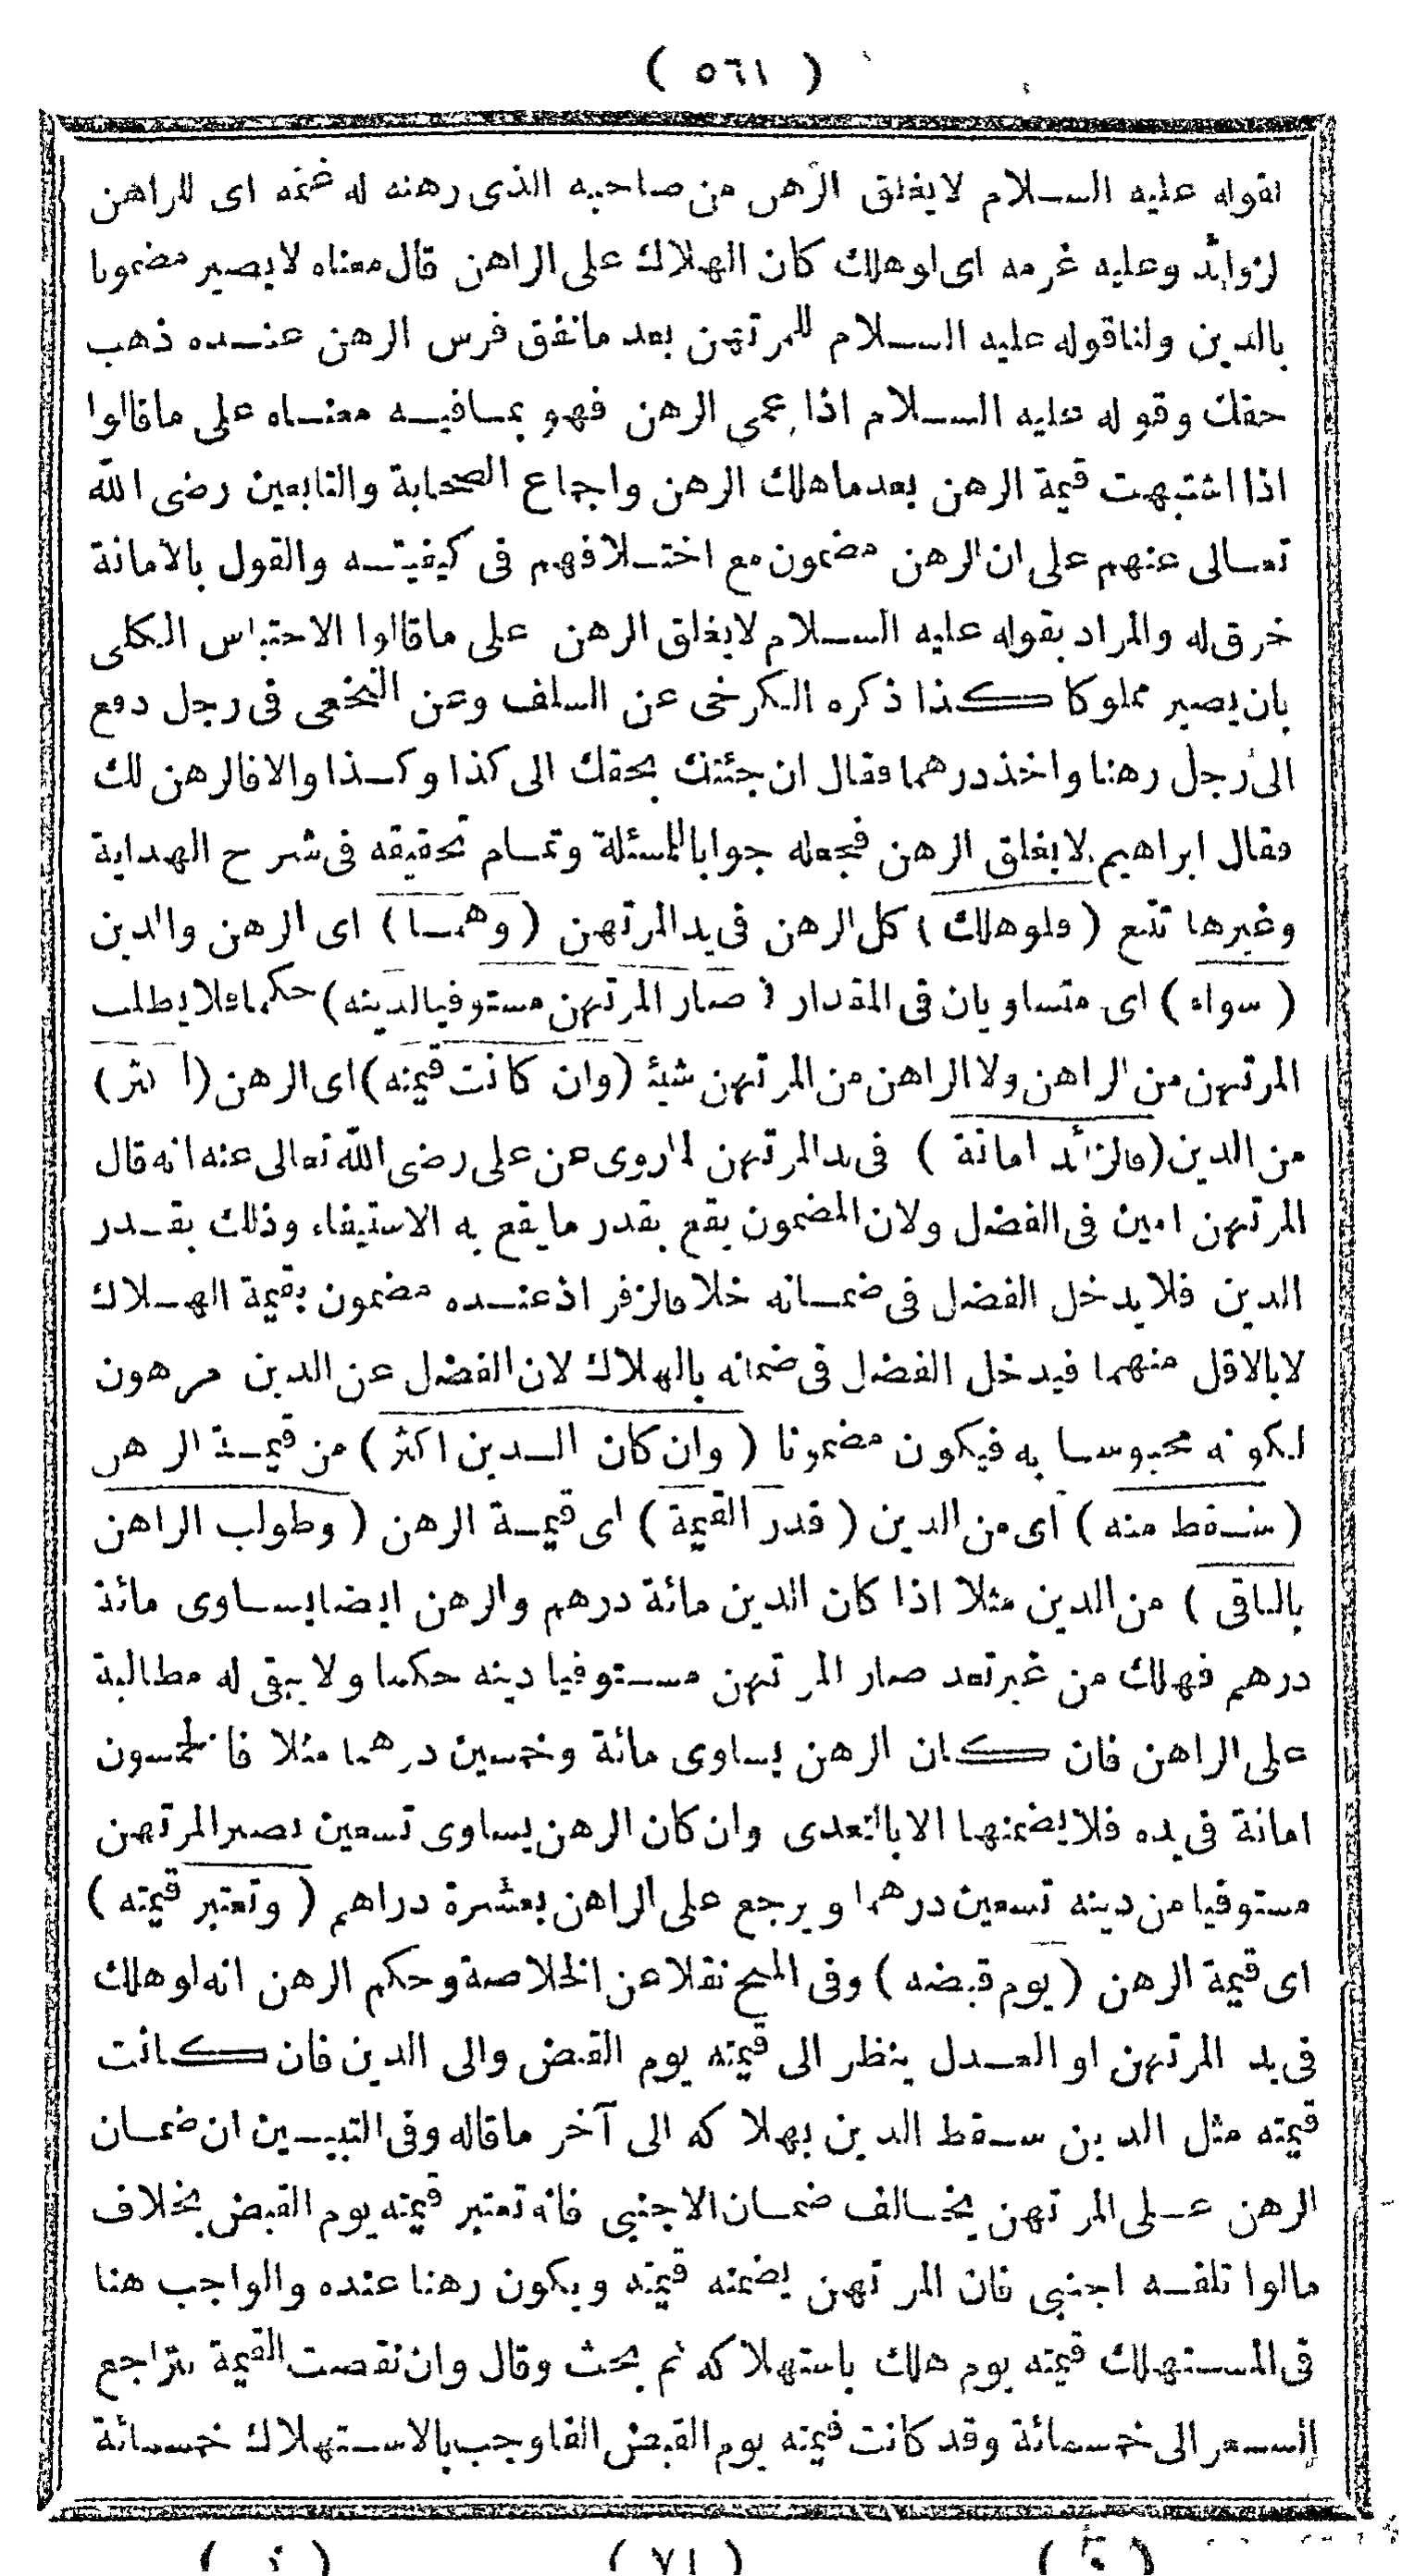 ( ٥٦١ )
لقوله عليه السلام لايغلق الرهن من صاحبه الذى رهنه له غنمه اى للراهن
زوائد وعليه غرمه اى لوهلك كان الهلاك على الراهن قال معناه لايصير مضمونا
بالدين ولناقوله عليه السلام للمرتهن بعد مانفق فرس الرهن عنده ذهب
حقك وقوله عليه السلام اذا عمى الرهن فهو بمافيه معناه على ماقالوا
اذا اشتبهت قيمة الرهن بعدماهلك الرهن واجماع الصحابة والتابعين رضى الله
تعالى عنهم على ان الرهن مضمون مع اختلافهم فى كيفيته والقول بالامانة
خرق له والمراد بقوله عليه السلام لايغلق الرهن على ماقالوا الاحتباس الكلى
بان يصير مملوكا كذا ذكره الكرخى عن السلف وعن النخعى فى رجل دفع
الى رجل رهنا واخذ درهما فقال ان جئتك بحقك الى كذا وكذا والا فالرهن لك
فقال ابراهيم لايغلق الرهن فجعله جوابا للمسئلة وتمام تحقيقه فى شرح الهداية
وغيرها تتبع ( فلوهلك ) كل الرهن فى يد المرتهن ( وهما ) اى الرهن والدين
( سواء ) اى متساويان فى المقدار ( صار المرتهن مستوفيالدينه ) حكما فلا يطلب
المرتهن من الراهن ولا الراهن من المرتهن شيئ ( وان كانت قيمته ) اى الرهن ( اكثر )
من الدين ( فالزائد امانة ) فى يد المرتهن لماروى عن على رضى الله تعالى عنه انه قال
المرتهن امين فى الفضل ولان المضمون يقع بقدر مايقع به الاستيفاء وذلك بقدر
الدين فلا يدخل الفضل فى ضمانه خلافالزفر اذ عنده مضمون بقيمة الهلاك
لابالاقل منهما فيدخل الفضل فى ضمانه بالهلاك لان الفضل عن الدين مرهون
لكونه محبوسا به فيكون مضمونا ( وان كان الدين اكثر ) من قيمة الرهن
( سقط منه ) اى من الدين ( قدر القيمة ) اى قيمة الرهن ( وطولب الراهن
بالباقى ) من الدين مثلا اذا كان الدين مائة درهم والرهن ايضا يساوى مائة
درهم فهلك من غير تعد صار المرتهن مستوفيا دينه حكما ولا يبقى له مطالبة
على الراهن فان كان الرهن يساوى مائة وخمسين درهما مثلا فالخمسون
امانة فى يده فلا يضمنها الا بالتعدى وان كان الرهن يساوى تسعين يصير المرتهن
مستوفيا من دينه تسعين درهما ويرجع على الراهن بعشرة دراهم ( وتعتبر قيمته )
اى قيمة الرهن ( يوم قبضه ) وفى المنح نقلا عن الخلاصة وحكم الرهن انه لو هلك
فى يد المرتهن او العدل ينظر الى قيمته يوم القبض والى الدين فان كانت
قيمته مثل الدين سقط الدين بهلاكه الى آخر ماقاله وفى التبيين ان ضمان
الرهن على المرتهن يخالف ضمان الاجنبى فانه تعتبر قيمته يوم القبض بخلاف
مالوا تلفه اجنبى فان المرتهن يضمنه قيمته ويكون رهنا عنده والواجب هنا
فى المستهلك قيمته يوم هلك باستهلاكه ثم بحث وقال وان نقصت القيمة بتراجع
السعر الى خمسمائة وقد كانت قيمته يوم القبض الفا وجب بالاستهلاك خمسمائة
( ٧١ )